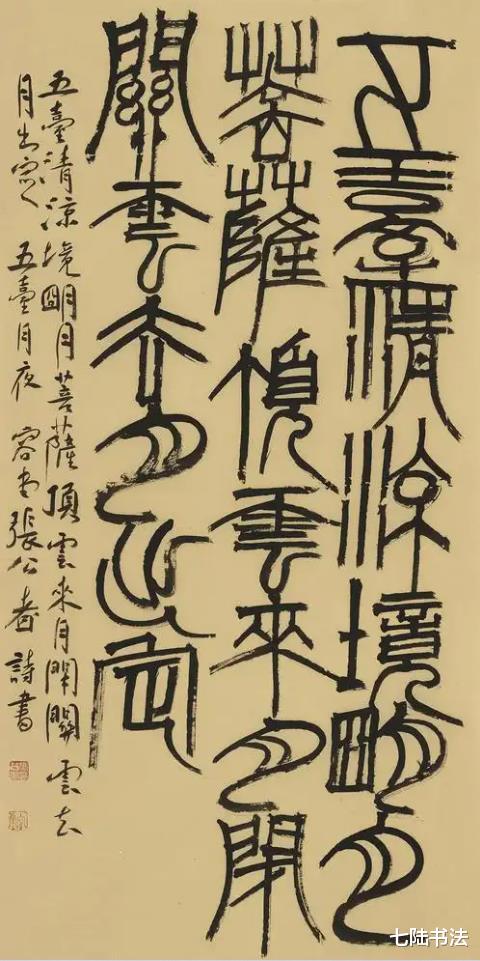 五臺清涼境朙月
菩薩頂雲來月閉
關雲去月出定
五臺清涼境朙月菩薩頂雲來月閉關雲去
月出定 五臺月夜 容堂張公者詩書
七陆书法